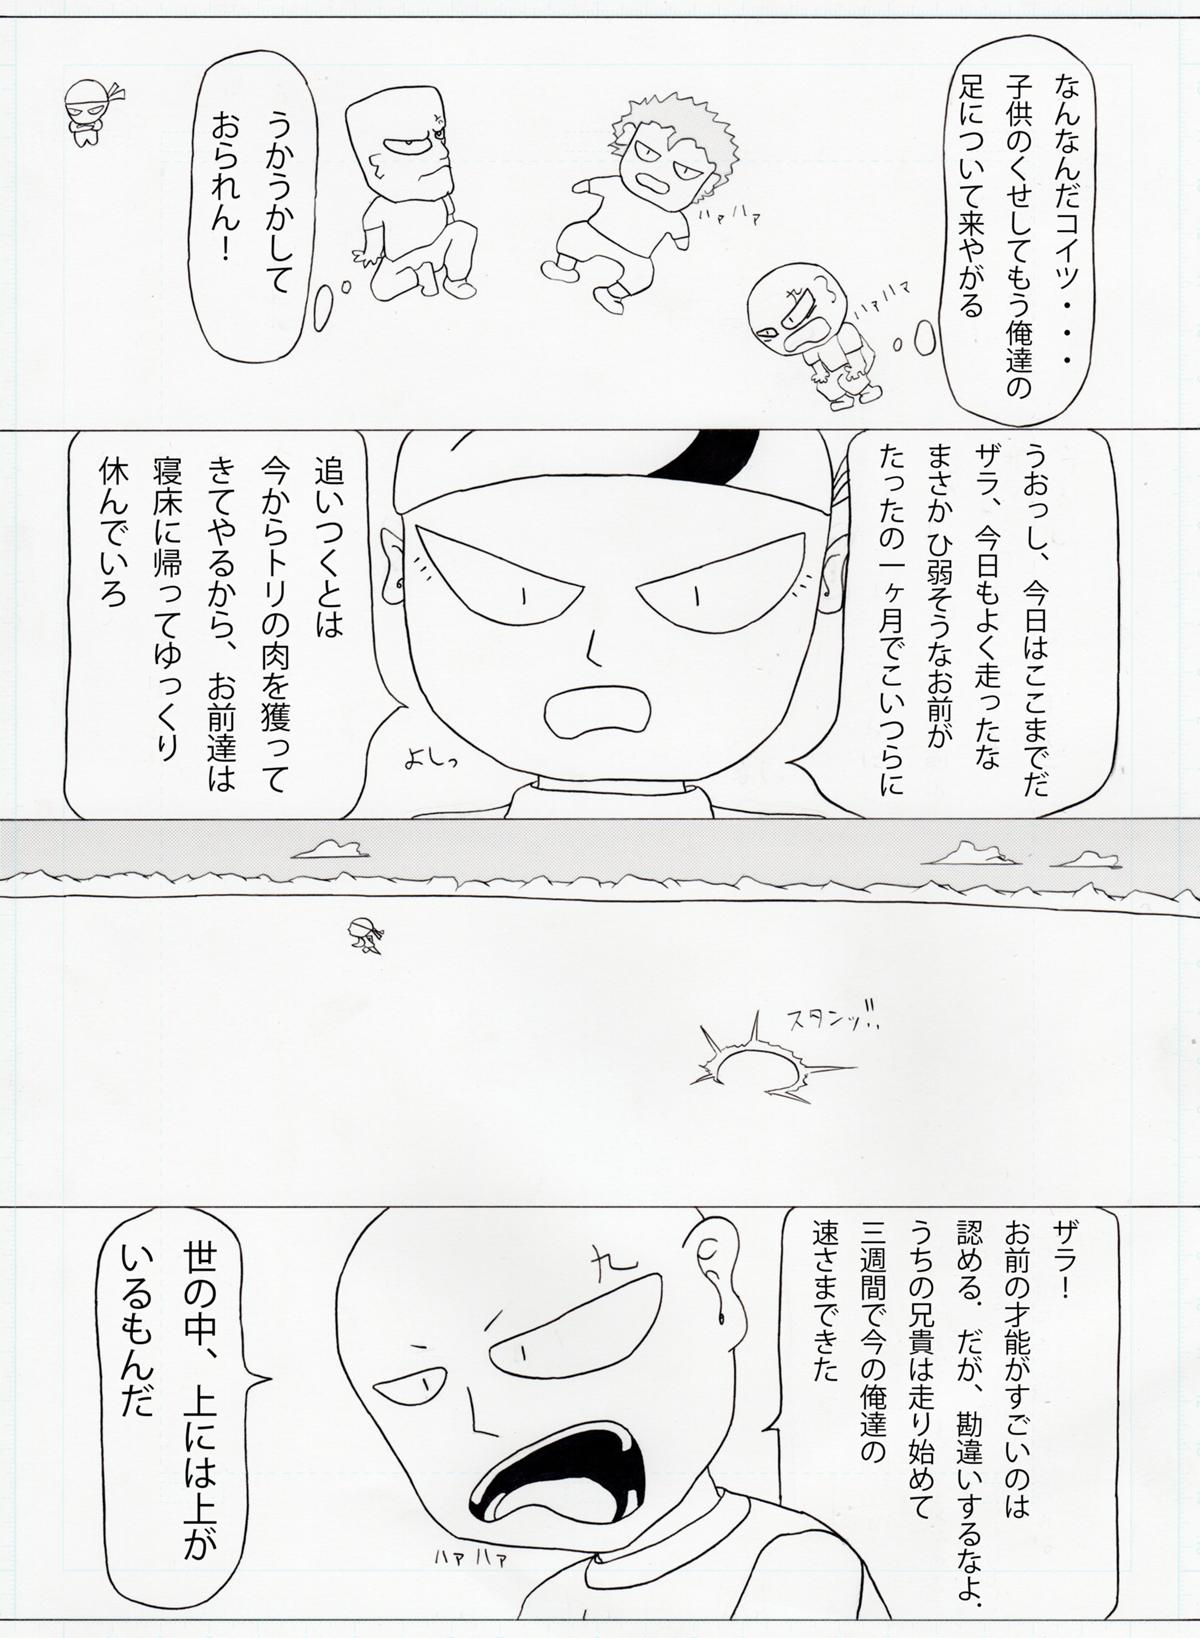 なんなんだコイツ・・・
子供のくせしてもう俺達の
足について来やがる
ハァハァ
ハァハァ
うかうかして
おられん！
うおっし、今日はここまでだ
ザラ、今日もよく走ったな
まさか ひ弱そうなお前が
たったの一ヶ月でこいつらに
追いつくとは
今からトリの肉を獲って
きてやるから、お前達は
寝床に帰ってゆっくり
休んでいろ
よしっ
スタンッ!!
ザラ！
お前の才能がすごいのは
認める．だが、勘違いするなよ．
うちの兄貴は走り始めて
三週間で今の俺達の
速さまできた
九
ハァハァ
世の中、上には上が
いるもんだ